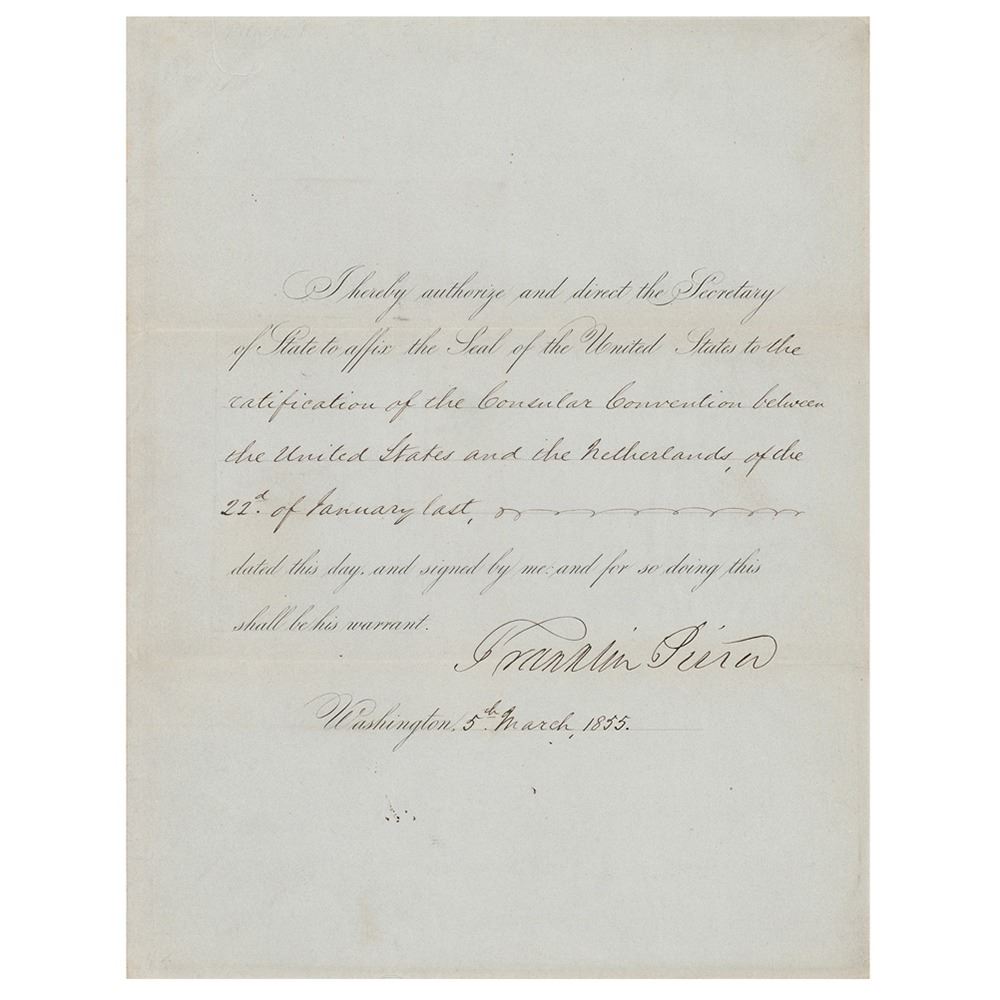 I hereby authorize and direct the Secretary
of State to affix the Seal of the United States to the
ratification of the Consular Convention between
the United States and the Netherlands, of the
22d. of January last,
dated this day, and signed by me: and for so doing this
shall be his warrant.
Franklin Pierce
Washington, 5th. March, 1855.